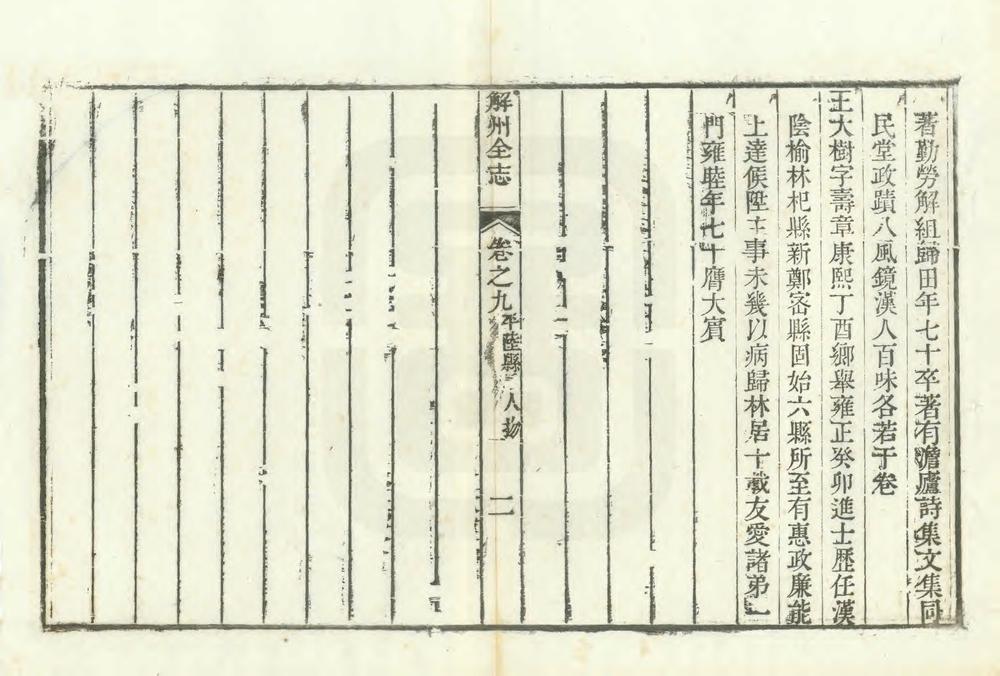 著勤勞解組歸田年七十卒著有澹廬詩集文集同
民堂政蹟八風鏡漢人百味各若干卷
王大樹字壽章康熙丁酉鄉舉雍正癸卯進士歷任漢
陰榆林杞縣新鄭密縣固始六縣所至有惠政廉能
上達候陞主事未幾以病歸林居十載友愛諸弟一
門雍睦年七十膺大賓
解州全志
卷之九
平陸縣
人物
二